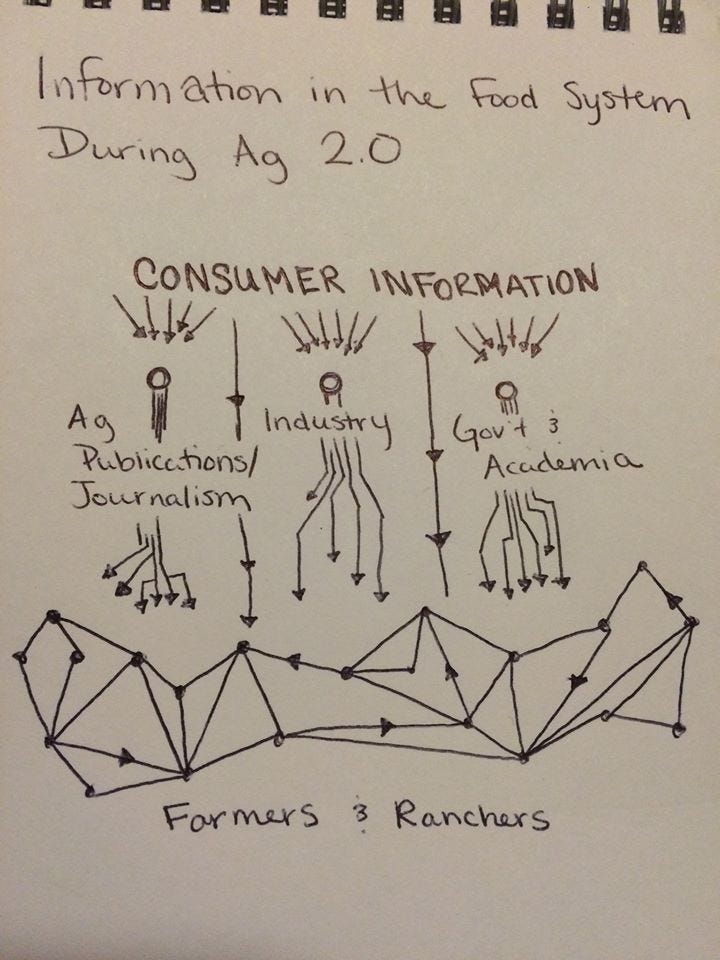 Information in the Food System
During Ag 2.0
CONSUMER INFORMATION
Ag
Publications/
Journalism
Industry
Gov't &
Academia
Farmers & Ranchers